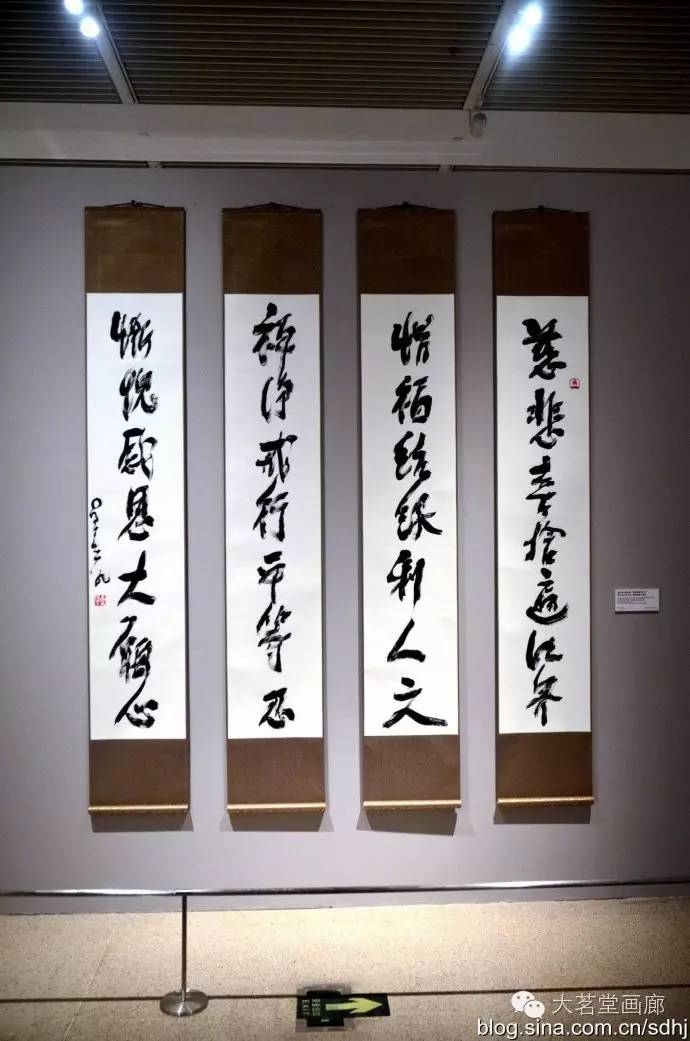 慈悲喜捨遍法界
惜福結緣利人天
禪淨戒行平等忍
慚愧感恩大願心
EXIT
大茗堂画廊
blog.sina.com.cn/sdhj